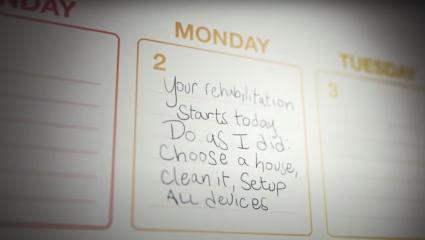 NDAY
MONDAY
TUESDAY
2
3
Your rehabilitation
Starts today
Do as I did:
Choose a house,
Clean it, Setup
All devices